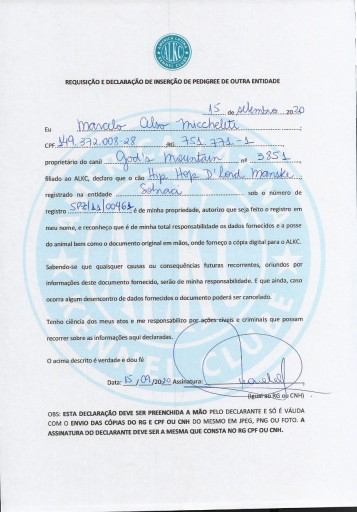 ALKC
REQUISIÇÃO E DECLARAÇÃO DE INSERÇÃO DE PEDIGREE DE OUTRA ENTIDADE
15 de setembro 2020
Eu Marcelo Miccheliti
CPF 149.372.008-28 RG 751.771-1
proprietário do canil God's Mountain nº 3851
filiado ao ALKC, declaro que o cão Hip Hop D'Lord Manske
registrado na entidade Sobraci sob o número de
registro SPZ/11/00461 é de minha propriedade, autorizo que seja feito o registro em
meu nome, e reconheço que é de minha total responsabilidade os dados fornecidos e a posse
do animal bem como o documento original em mãos, onde forneço a cópia digital para o ALKC.
Sabendo-se que quaisquer causas ou consequências futuras recorrentes, oriundos por
informações deste documento fornecido, serão de minha responsabilidade. E que ainda, caso
ocorra algum desencontro de dados fornecidos o documento poderá ser cancelado.
Tenho ciência dos meus atos e me responsabilizo por ações cíveis e criminais que possam
recorrer sobre as informações aqui declaradas.
O acima descrito é verdade e dou fé
Data: 15/09/2020 Assinatura:
(Igual ao RG ou CNH)
OBS: ESTA DECLARAÇÃO DEVE SER PREENCHIDA A MÃO PELO DECLARANTE E SÓ É VÁLIDA
COM O ENVIO DAS CÓPIAS DO RG E CPF OU CNH DO MESMO EM JPEG, PNG OU FOTO. A
ASSINATURA DO DECLARANTE DEVE SER A MESMA QUE CONSTA NO RG CPF OU CNH.